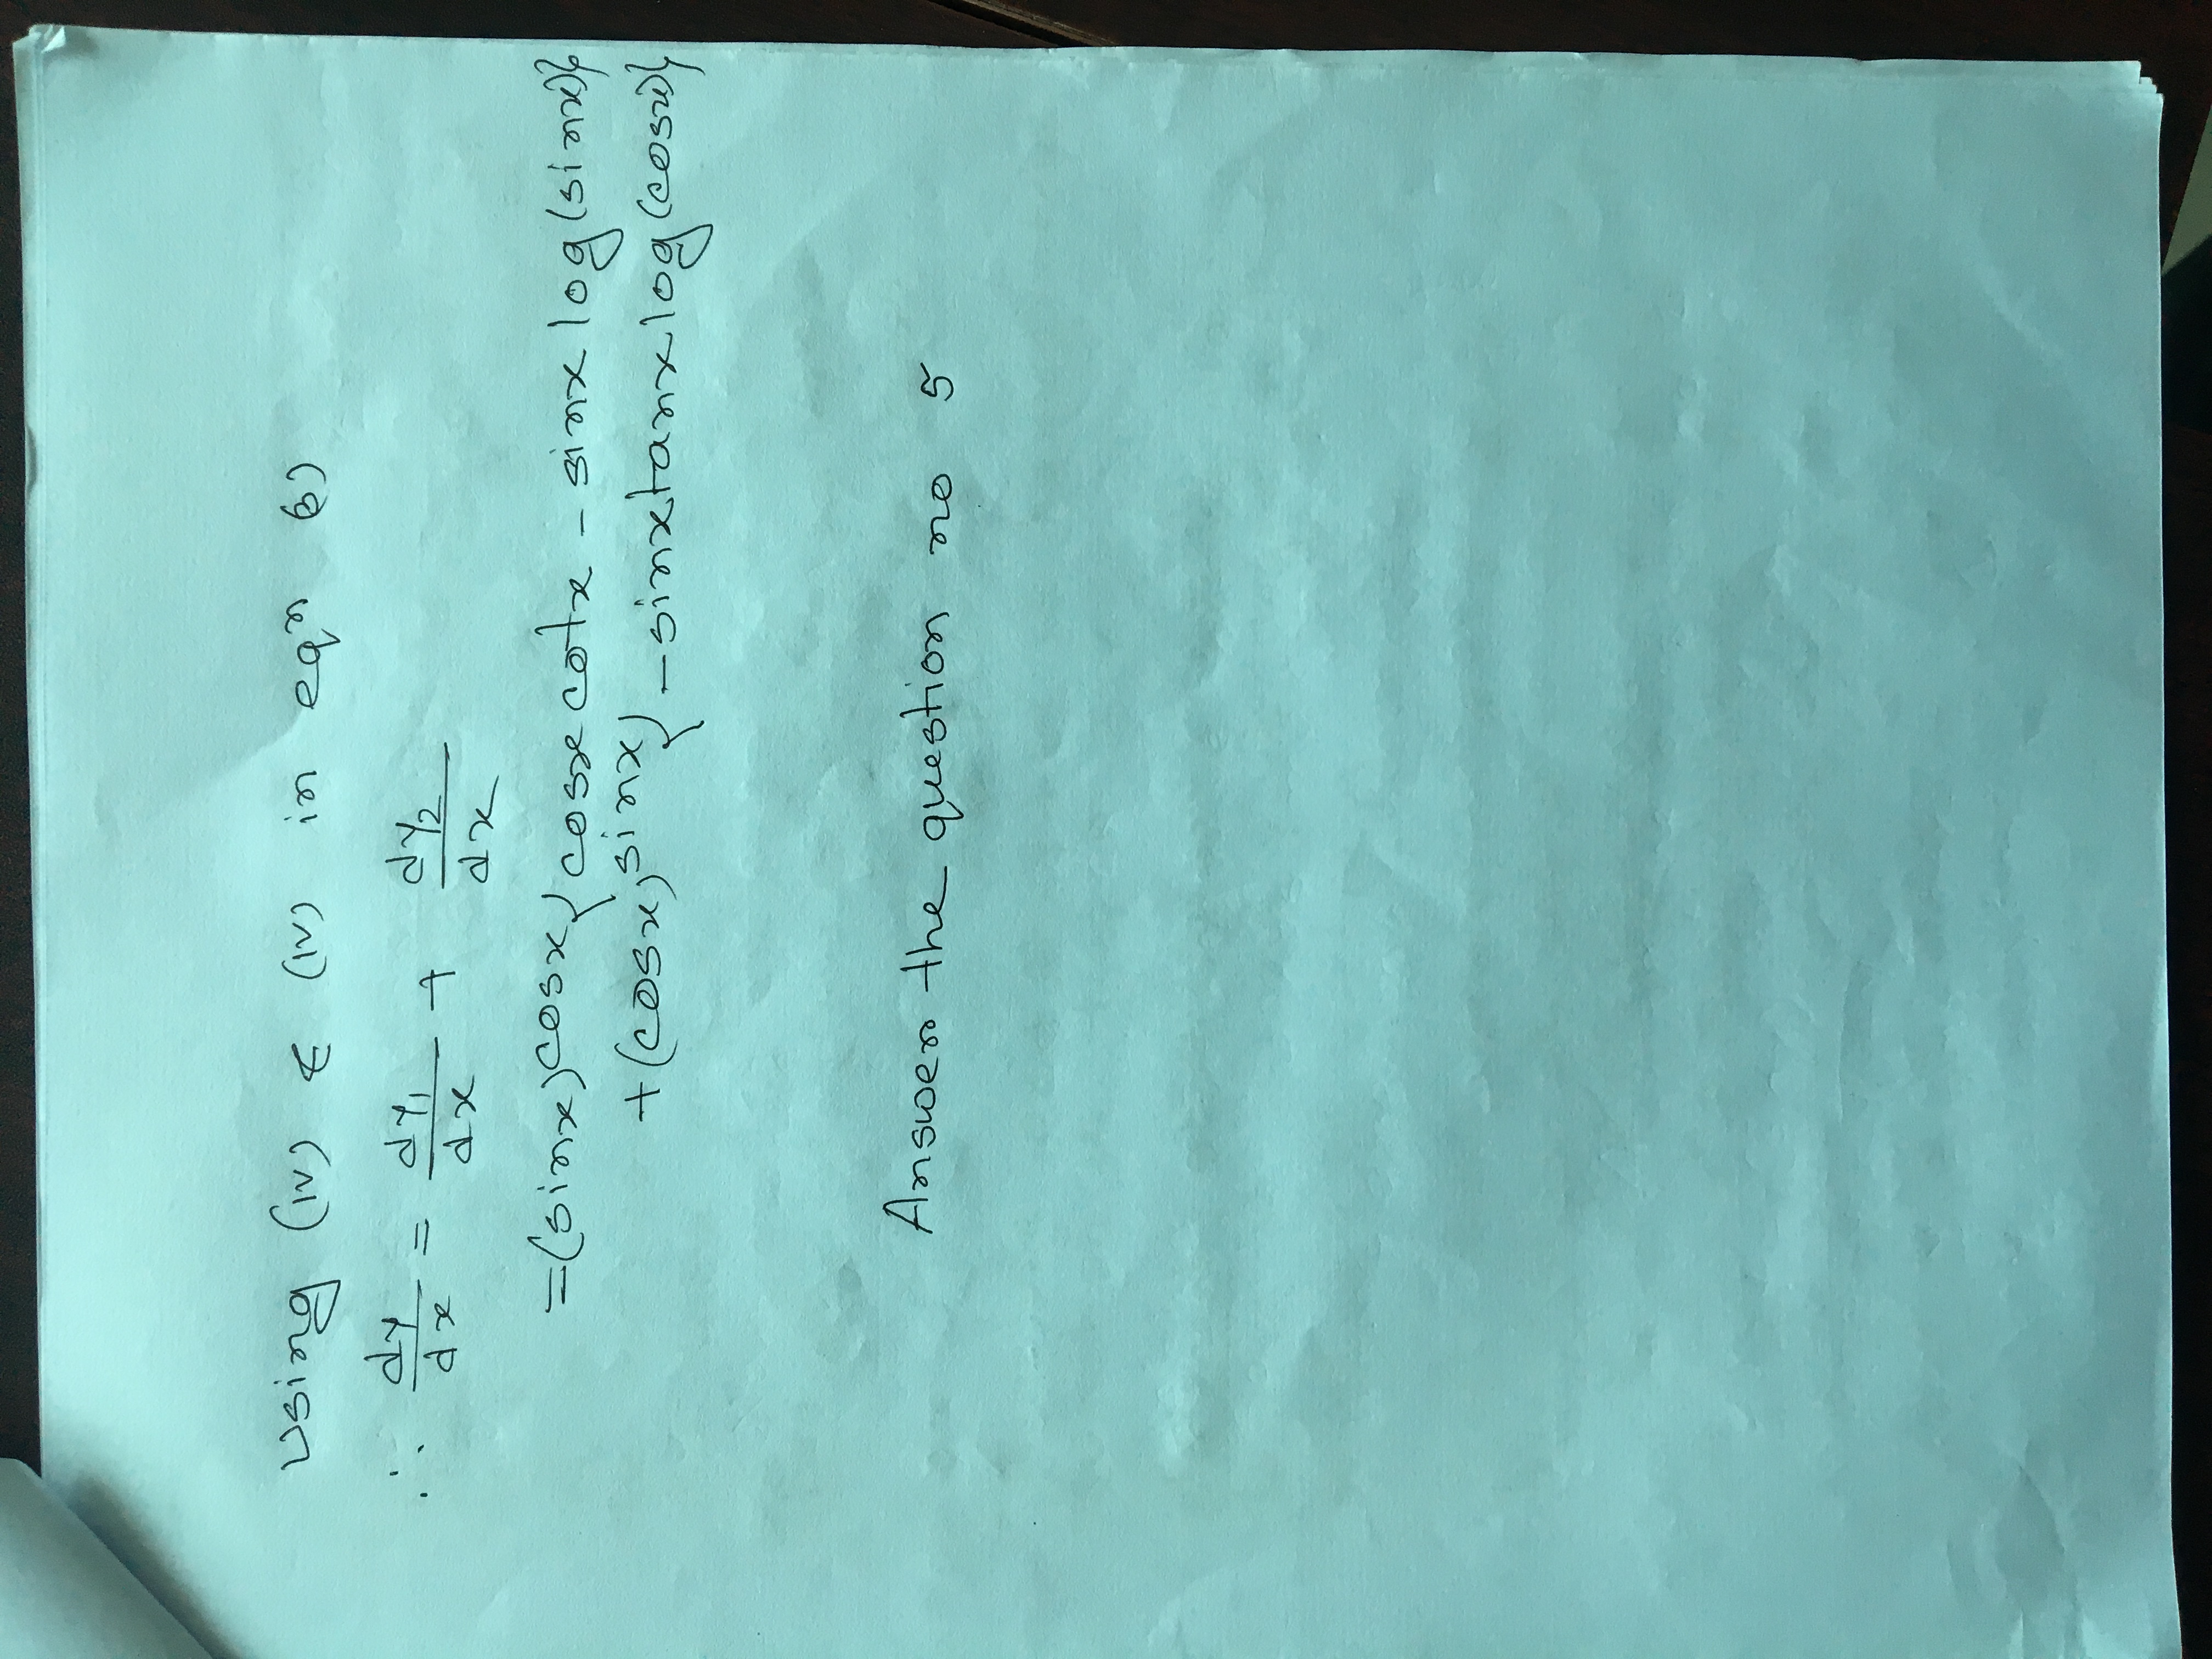 Using (iv) & (iv) in eqⁿ (3)
∴ dy/dx = dy₁/dx + dy₂/dx
=(sinx)^cosx{cosx cotx - sinx log(sinx)}
+(cosx)^sinx{-sinxtanxlog(cosx)}
Answer the question no 5